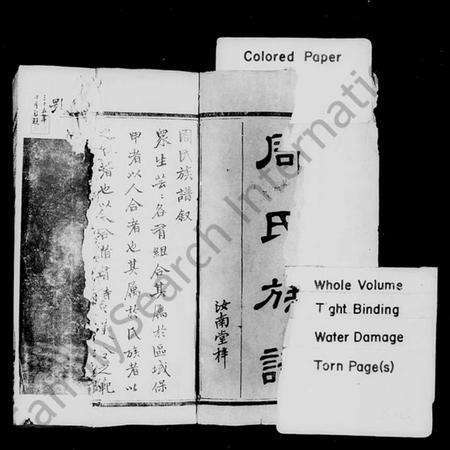 Colored Paper
周氏族譜
汝南堂梓
周氏族譜叙
眾生芸芸各有組合其屬於區域保
甲者以人合者也其屬於氏族者以
Whole Volume
Tight Binding
Water Damage
Torn Page(s)
FamilySearch International